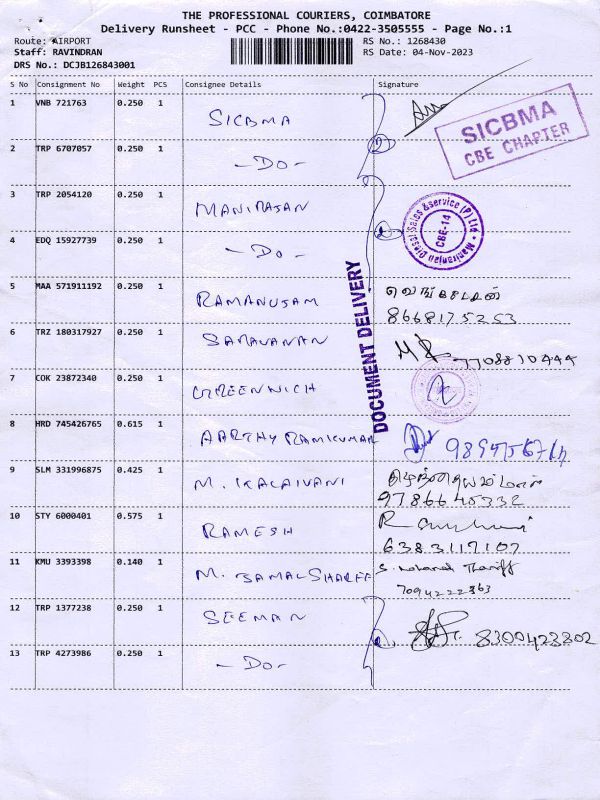 THE PROFESSIONAL COURIERS, COIMBATORE
Delivery Runsheet - PCC - Phone No.:0422-3505555 - Page No.:1
Route: AIRPORT
RS No.: 1268430
Staff: RAVINDRAN
RS Date: 04-Nov-2023
DRS No.: DCJB126843001
S No Consignment No Weight PCS Consignee Details Signature
1 VNB 721763 0.250 1 SICBMA
SICBMA
CBE CHAPTER
2 TRP 6707057 0.250 1 -DO-
3 TRP 2054120 0.250 1 MANIRAJAN
Manirajan Diesel Sales & Service (P) Ltd
CBE-14
4 EDQ 15927739 0.250 1 -DO-
DOCUMENT DELIVERY
5 MAA 571911192 0.250 1 RAMANUJAM
8668175253
6 TRZ 180317927 0.250 1 SARAVANAN
7708810444
7 COK 23872340 0.250 1 GREENWICH
8 HRD 745426765 0.615 1 AARTHY RAMKUMAR
9 SLM 331996875 0.425 1 M. KALAIVANI
9786645332
10 STY 6000401 0.575 1 RAMESH
6383117107
11 KMU 3393398 0.140 1 M. JAMAL SHAREE
7094222863
12 TRP 1377238 0.250 1 SEEMAN
8300423302
13 TRP 4273986 0.250 1 -DO-